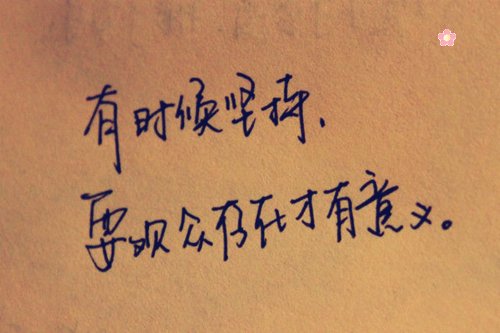 有时候坚持，
要观众存在才有意义。